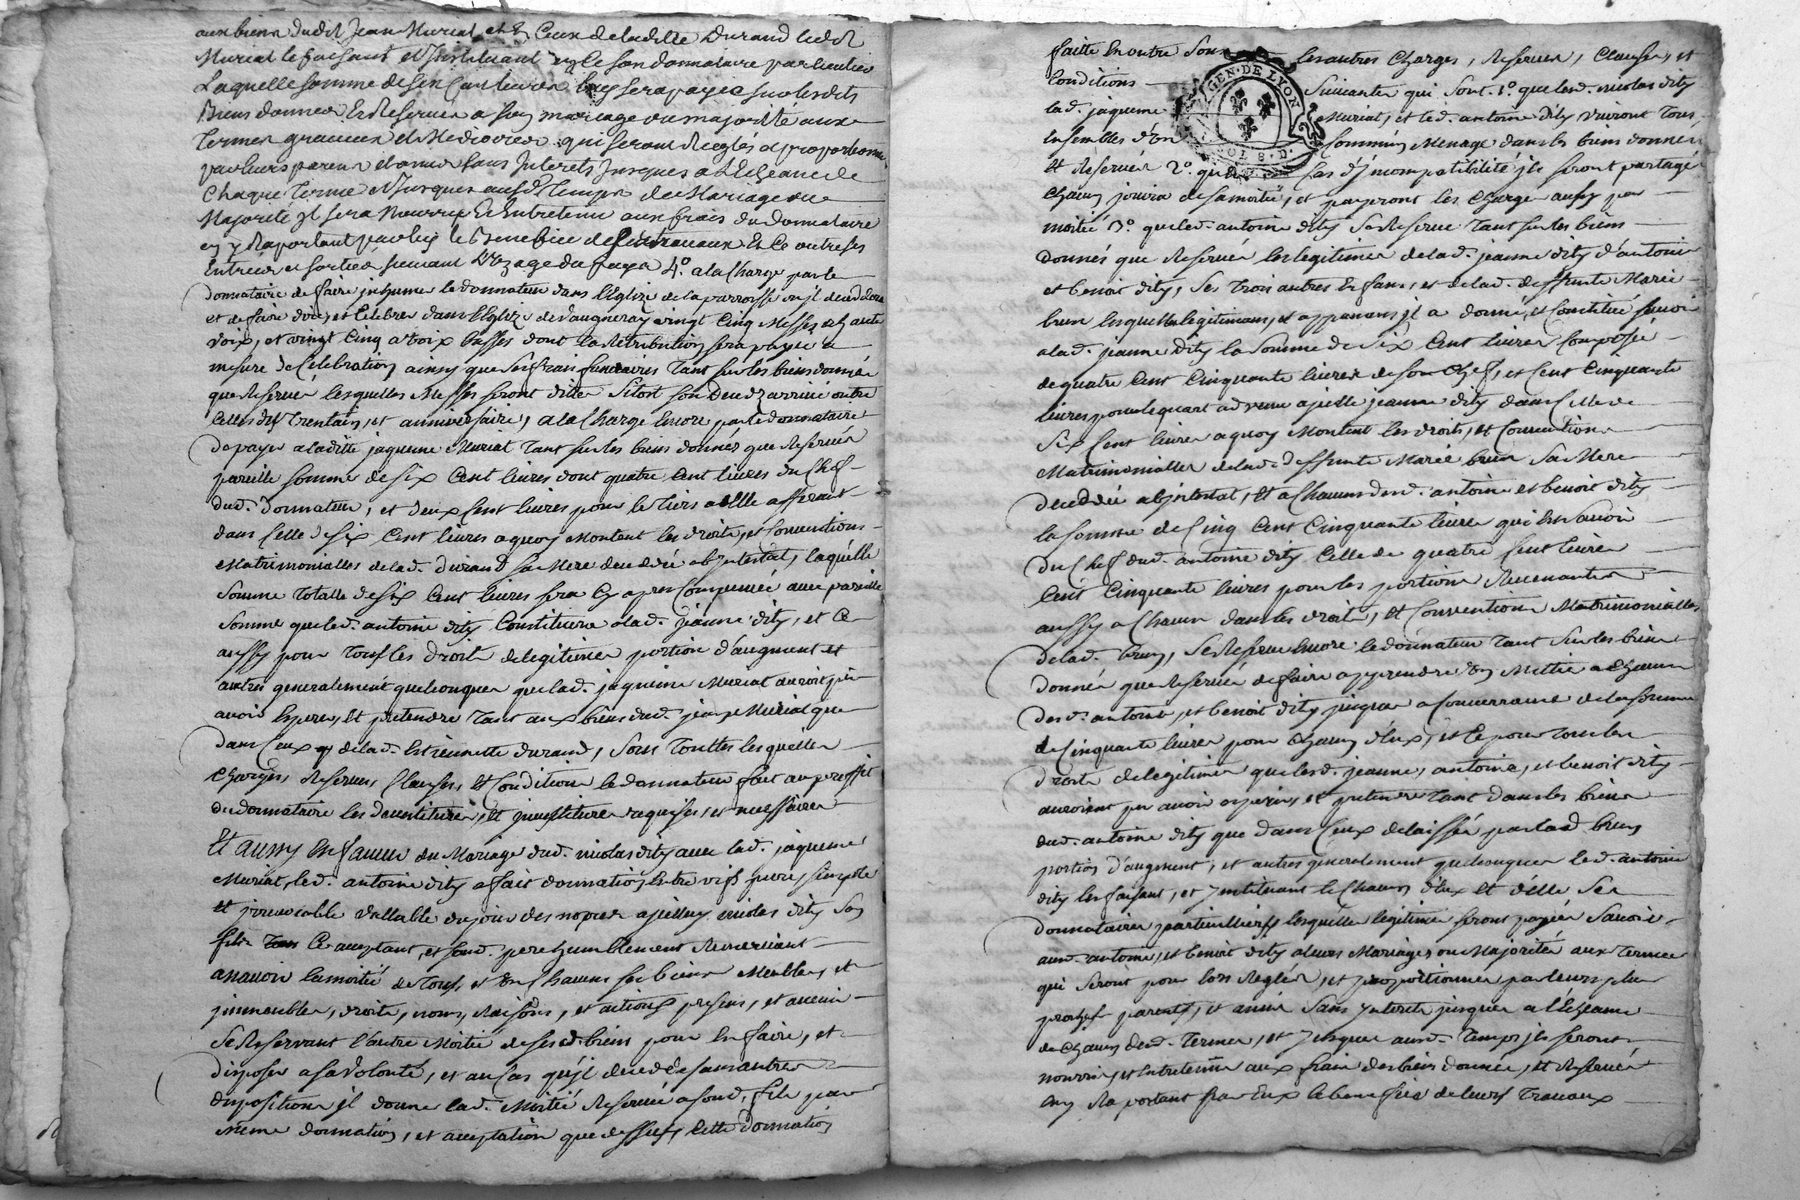 aux biens dudit Jean Muriat et à Ceux de ladite Durand ledit
Muriat le faisant et Instituant en ce son donnataire particulier
Laquelle somme de six Cent livres luy sera payée sur lesdits
Biens donnés Et Reservés a son mariage ou majorité aux
termes gracieux et Mediocres qui seront Reglés et proportionnés
par leurs parens et amis sans Interets Jusques a l'Echeance de
Chaque terme et Jusques ausd. temps de Mariage ou
Majorité Il sera Nourry Et Entretenu aux frais du Donnataire
en y Raportant par luy le Benefice de ses travaux Et Ce outre ses
Entrées et sorties suivant l'Uzage du pays 4°. a la Charge par le
donnataire de faire inhumer le donnateur dans l'Eglize de la parroisse ou il decedera
et de faire dire, et Celebrer dans l'Eglize de Vaugneray vingt Cinq Messes a haute
voix, et vingt Cinq a voix basses dont la Retribution sera payée a
mesure de Celebration ainsy que ses frais funeraires tant sur les biens donnés
que Reservés lesquelles Messes seront dittes sitost son deceds arrivé outre
Celles du trentain, et anniversaire, a la Charge encore par le donnataire
de payer a laditte jaqueme Muriat tant sur les biens donnés que Reservés
pareille somme de six Cent livres dont quatre Cent livres du Chef
dud. donnateur, et deux Cent livres pour le tiers a elle afferant
dans Celle de six Cent livres a quoy Montent les droits, et Conventions
Matrimonialles de lad. durand sa Mere decedée ab intestat, laquelle
Somme totalle de six Cent livres sera Cy apres Compensée avec pareille
Somme que led. antoine dity Constituera a lad. jeanne dity, et Ce
aussy pour tous les droits de legitimes portion d'augment et
autres generalement quelconques que lad. jaqueme Muriat auroit pu
avoir Esperer, Et pretendre tant aux biens dud. jean Muriat que
dans Ceux de lad. Estiennette durand, sous touttes lesquelles
Charges, Reserves, Clauses, Et Conditions le donnateur fait au proffit
du donnataire les devestitures, Et investitures requises, et necessaires
Et aussy En faveur du Mariage dud. nicolas dity avec lad. jaqueme
Muriat, led. antoine dity a fait donnation Entre vifs pure, simple
et irrevocable vallable du jour des nopces a jcelluy nicolas dity son
fils Ce acceptant, et sond. pere humblement Remerciant
a scavoir la moitié de tous, et Un Chacuns ses biens Meubles, et
jmmeubles, droits, noms, Raisons, et actions presens, et avenir
Se Reservant l'autre Moitié de sesd. biens pour En faire, et
disposer a sa Volonté, et au Cas qu'jl decede sans autres
dispositions jl donne lad. Moitié Reservée a sond. fils par
Meme donnation, et acceptation que dessus, Cette donnation
faitte En outre sous les autres Charges, Reserves, Clauses, et
Conditions Suivantes qui Sont. 1°. que lesd. nicolas dity
lad. jaqueme Muriat, et led. antoine dity vivront tous
Ensembles d'Un Commun Menage dans les biens donnés
Et Reservés 2°. qu'En Cas d'jncompatibilité jls seront partagés
Chacun jouira de sa moitié, et payeront les Charges aussy par
moitié 3°. que led. antoine dity Se Reserve tant sur les biens
donnés que Reservés les legitimes de lad. jeanne dity d'antoine
et benoit dity, Ses trois autres Enfans, et de lad. deffunte Marie
brun lesquelles legitimant, et appanant jl a donné, et Constitué scavoir
a lad. jeanne dity la Somme de Six Cent livres Composée
de quatre Cent Cinquante livres de son Chef, et Cent Cinquante
livres pour le quart advenu a jcelle jeanne dity dans Celle de
Six Cent livres a quoy Montent les droits, et Conventions
Matrimonialles de lad. deffunte Marie brun Sa Mere
decedée ab jntestat, Et a Chacuns desd. antoine et benoit dity
la somme de Cinq Cent Cinquante livres qui Est Savoir
du Chef dud. antoine dity Celle de quatre Cent livres
Cent Cinquante livres pour les portions Revenantes
aussy a Chacun dans les droits, Et Conventions Matrimonialles
de lad. brun, Se Reserve Encore le donnateur tant Sur les biens
donnés que Reservés de faire apprendre Un Mettier a Chacun
desd. antoine, et benoit dity jusques a Concurrance de la Somme
de Cinquante livres pour Chacun d'Eux, et Ce pour tous les
droits de legitimes que lesd. jeanne, antoine, et benoit dity
auroient pu avoir esperer, et pretendre tant dans les biens
dud. antoine dity que dans Ceux delaissés par lad brun
portion d'augment, et autres generalement quelconques led. antoine
dity les faisant, et jnstituant le Chacuns d'Eux Et d'Elle Ses
donnataires particulliers lesquelles legitimes seront payées Savoir
aux. antoine, et benoit dity a leurs Mariages ou Majorités aux termes
qui Seront pour lors Reglés, et proportionnés par leurs plus
proches parents, et amis Sans jnterets jusques a l'Echeance
de Chacun desd. termes, et jusques ausd. temps jls seront
nourris, et Entretenus aux frais des biens donnés, et Reservés
en y Raportant par Eux le benefice de leurs travaux
GEN. DE LYON